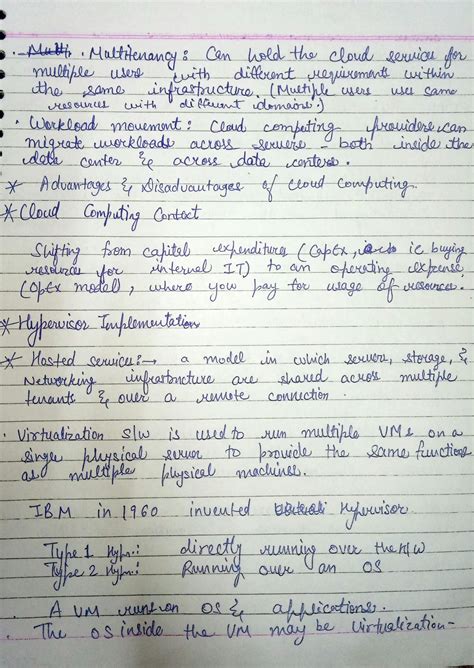 · Multi · Multitenancy : Can hold the cloud services for
multiple users with different requirements within
the same infrastructure. (Multiple users uses same
resources with different domains.)
· Workload movement : Cloud computing providers can
migrate workloads across servers - both inside the
data center & across data centers.
* Advantages & Disadvantages of Cloud Computing.
* Cloud Computing Context
Shifting from capital expenditures (CapEx, ie buying
resources for internal IT) to an operating expense
(OpEx model), where you pay for usage of resources.
* Hypervisor Implementation
* Hosted services :→ a model in which servers, storage, &
Networking infrastructure are shared across multiple
tenants & over a remote connection.
· Virtualization S/w is used to run multiple VMs on a
single physical server to provide the same functions
as multiple physical machines.
IBM in 1960 invented Hypervisor.
Type 1 Hyp.: directly running over the H/W
Type 2 Hyp.: Running over an OS
· A VM runs on OS & applications.
· The OS inside the VM may be virtualization-